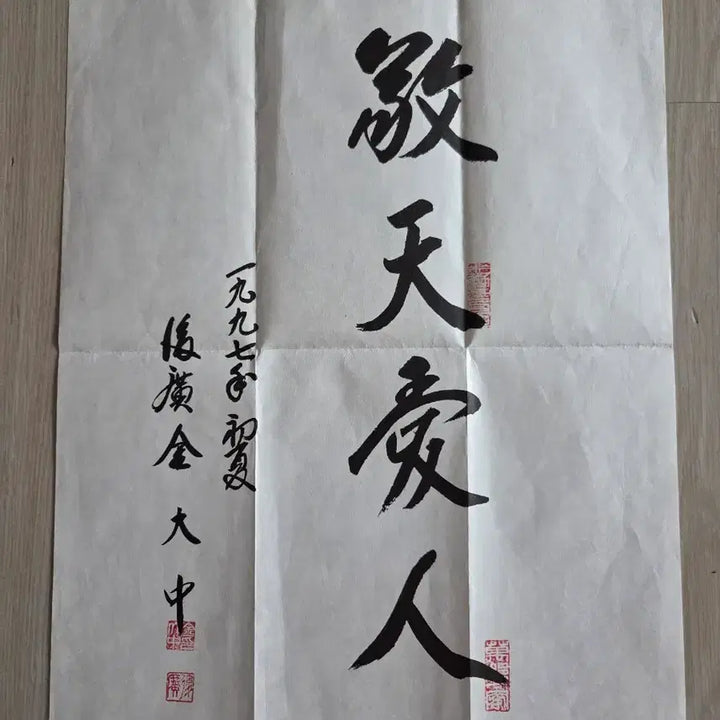 敬天愛人
一九九七年 初夏
後廣金大中